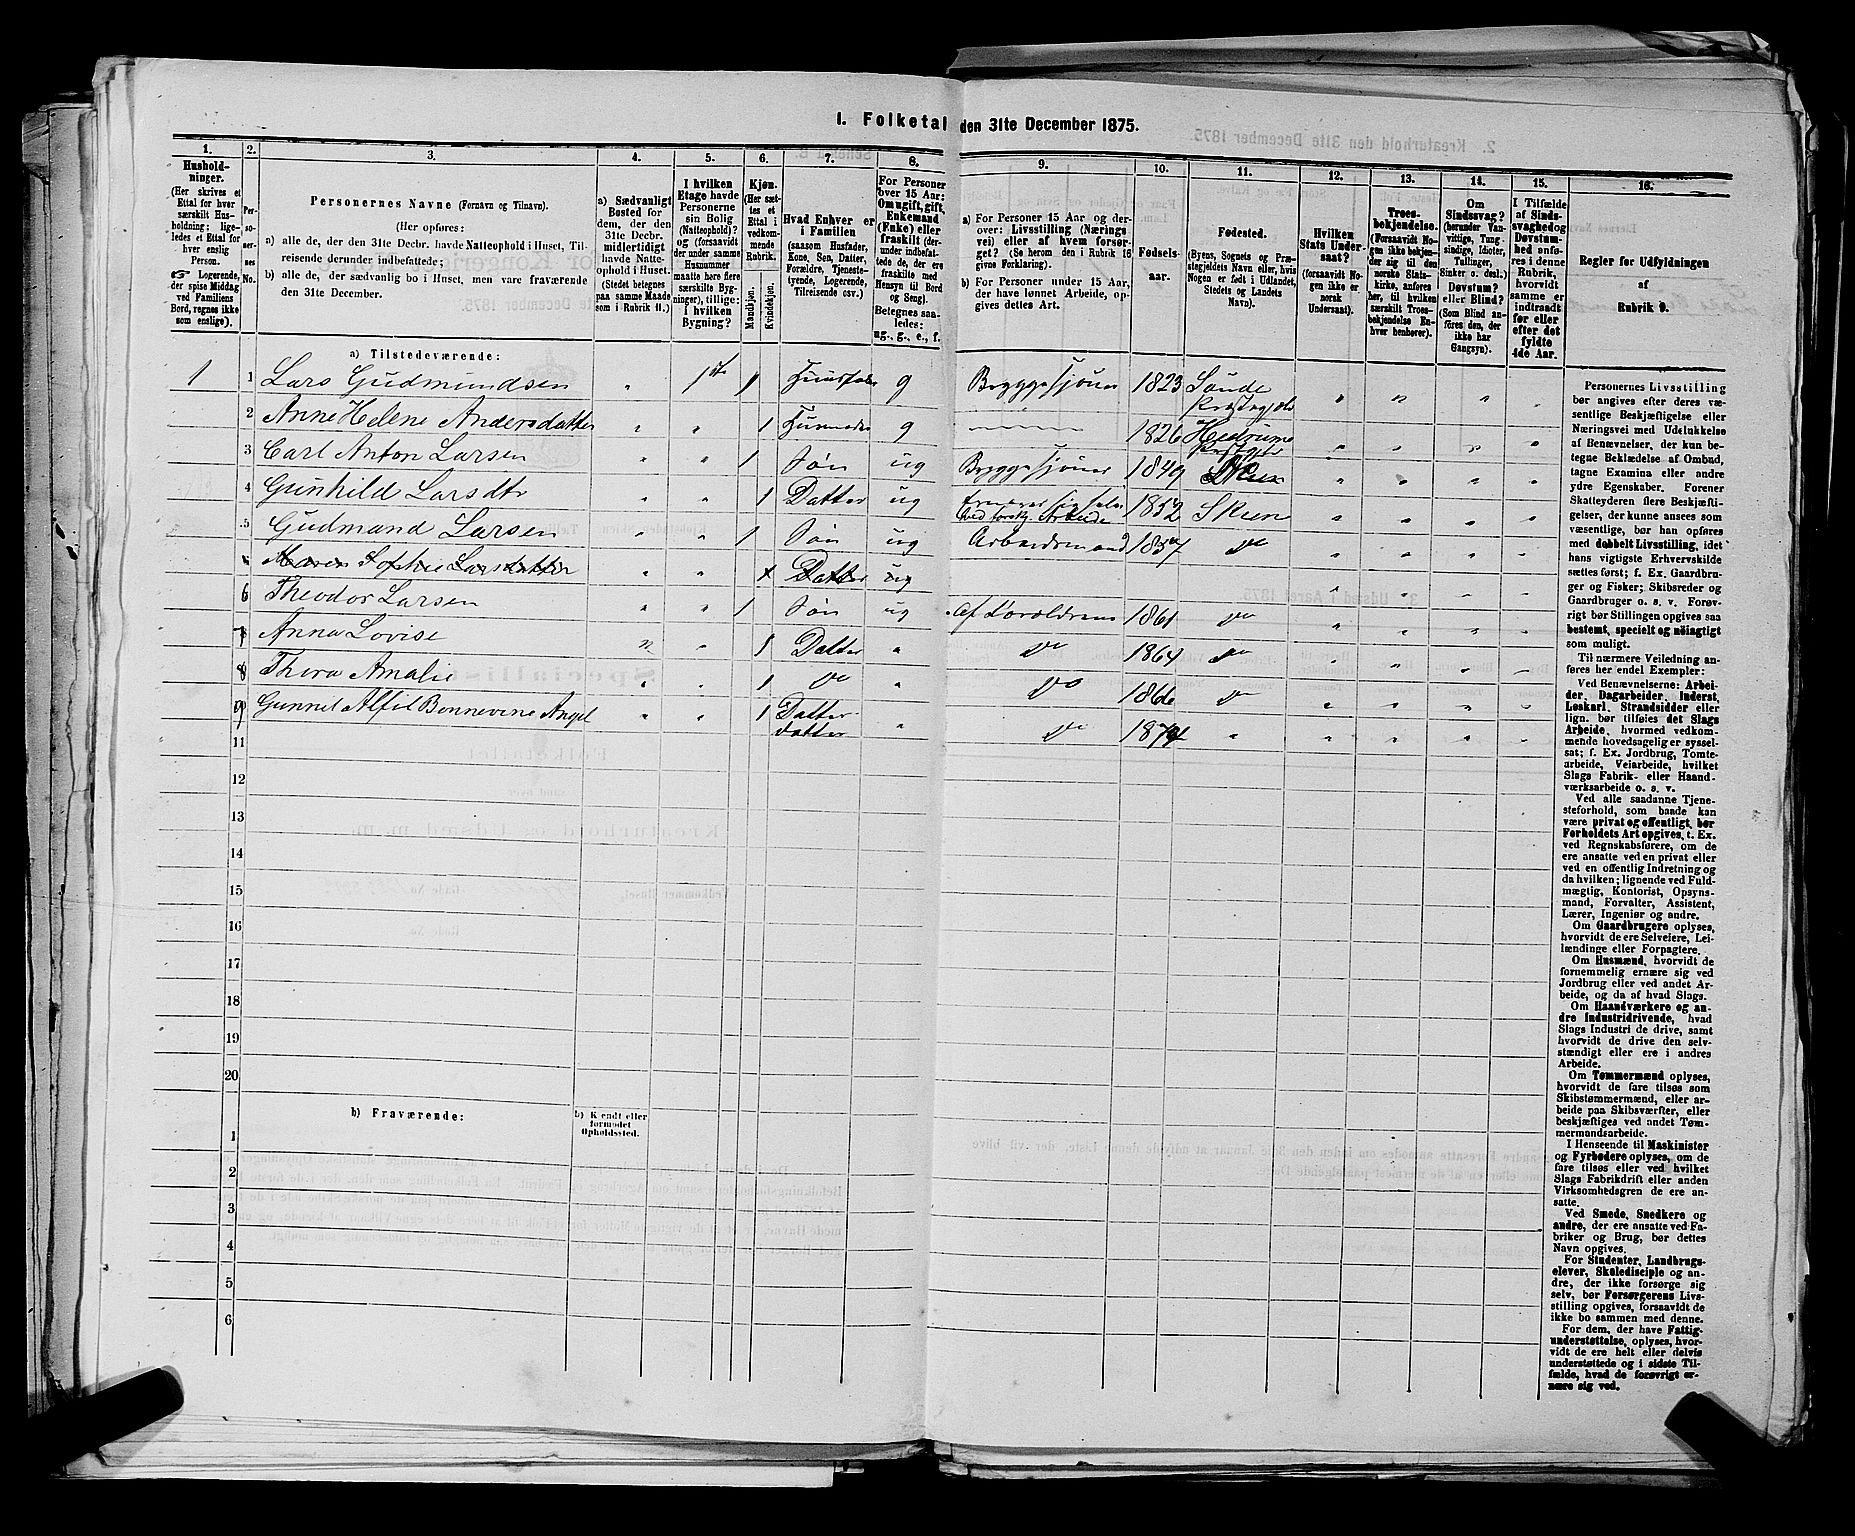 1. Folketal den 31te December 1875.
1.
2.
3.
4.
5.
6.
7.
8.
9.
10.
11.
12.
13.
14.
15.
16.
Hushold-
ninger.
(Her skrives et
Ettal for hver
særskilt Hus-
holdning; lige-
ledes et Ettal for
hver enslig
Person.
☞ Logerende,
der spise Middag
ved Familiens
Bord, regnes ikke
som enslige).
Per-
so-
ner-
nes
No.
Personernes Navne (Fornavn og Tilnavn).
(Her opføres:
a) alle de, der den 31te Decbr. havde Natteophold i Huset, Til-
reisende derunder indbefattede;
b) alle de, der sædvanlig bo i Huset, men vare fraværende
den 31te December.
a) Sædvanligt
Bosted for
dem, der den
31te Decbr.
midlertidigt
havde Natte-
ophold i Huset.
(Stedet betegnes
paa samme Maade
som i Rubrik 11.)
I hvilken
Etage havde
Personerne
sin Bolig
(Natteophold)?
og (forsaavidt
der under samme
Husnummer
maatte høre flere
særskilte Byg-
ninger), tillige:
i hvilken
Bygning?
Kjøn.
(Her sæt-
tes et
Ettal i
vedkom-
mende
Rubrik.
Mandkjøn.
Kvindekjøn.
Hvad Enhver er
i Familien
(saasom Husfader,
Kone, Søn, Datter,
Forældre, Tjeneste-
tyende, Logerende,
Tilreisende osv.)
For Personer
over 15 Aar:
Om ugift, gift,
Enkemand
(Enke) eller
fraskilt (der-
under indbefat-
tede de, der ere
fraskilte med
Hensyn til Bord
og Seng).
Betegnes saa-
ledes:
ug., g., e., f.
a) For Personer 15 Aar og der-
over: Livsstilling (Nærings-
vei) eller af hvem forsør-
get? (Se herom den i Rubrik 16
givne Forklaring).
b) For Personer under 15 Aar,
der have lønnet Arbeide, op-
gives dettes Art.
Fødsels-
aar.
Fødested.
(Byens, Sognets og Præ-
stegjeldets Navn eller, hvis
Nogen er født i Udlandet,
Stedets og Landets
Navn).
Hvilken
Stats Under-
saat?
(forsaavidt No-
gen ikke er
norsk
Undersaat).
Troes-
bekjendelse.
(Forsaavidt No-
gen ikke bekjen-
der sig til den
norske Stats-
kirke, anføres
her, til hvilken
særskilt Troes-
bekjendelse En-
hver henhører).
Om
Sindssvag?
(herunder Van-
vittige, Tung-
sindige, Idioter,
Tullinger,
Sinker o. desl.)
Døvstum?
eller Blind?
(Som Blind an-
føres den, der
ikke har
Gangsyn).
I Tilfælde
af Sinds-
svaghed og
Døvstum-
hed anfø-
res i denne
Rubrik,
hvorvidt
samme er
indtraadt
før eller
efter det
fyldte
4de Aar.
Regler for Udfyldningen
af
Rubrik 9.
a) Tilstedeværende:
1 1 Lars Gudmundsen " 1ste 1 Huusfader g Bryggesjouer 1823 Saude Præstegjeld " " " "
2 Anne Helene Andersdatter " " 1 Huusmoder g 1826 Hedrums Præstgjeld " " " "
3 Carl Anton Larsen " " 1 Søn ug Bryggesjouer 1849 Skien " " " "
4 Gunhild Larsdtr " " 1 Datter ug 1852 Skien " " " "
5 Gudmand Larsen " " 1 Søn ug Arbeidsmand 1857 do " " " "
Maren Sophie Larsdatter " " Datter ug " " " "
6 Theodor Larsen " " 1 Søn ug Af Forældrene 1861 do " " " "
7 Anna Lovise " " 1 Datter " do 1864 do " " " "
8 Thora Amalie " " 1 do " do 1866 do " " " "
9 Gunnel Alfil Bonnevine Angel " " 1 Datter Datter " do 1874 " " " " "
11
12
13
14
15
16
17
18
19
20
b) Fraværende:
b) Kjendt eller
formodet
Opholdssted.
1
2
3
4
5
6
Personernes Livsstilling
bør angives efter deres væ-
sentlige Beskjæftigelse eller
Næringsvei med Udelukkelse
af Benævnelser, der kun be-
tegne Beklædelse af Ombud,
tagne Examina eller andre
ydre Egenskaber. Forener
Skatteyderen flere Beskjæfti-
gelser, der kunne ansees som
væsentlige, bør han opføres
med dobbelt Livsstilling, idet
hans vigtigste Erhvervskilde
sættes først; f. Ex. Gaardbru-
ger og Fisker; Skibsreder og
Gaardbruger o. s. v. Forøv-
rigt bør Stillingen opgives saa
bestemt, specielt og nøiagtigt
som muligt.
Til nærmere Veiledning an-
føres her endel Exempler:
Ved Benævnelserne: Arbei-
der, Dagarbeider, Inderst,
Løskarl, Strandsidder eller
lign. bør tilføies det Slags
Arbeide, hvormed vedkom-
mende hovedsagelig er syssel-
sat; f. Ex. Jordbrug, Tomte-
arbeide, Veiarbeide, hvilket
Slags Fabrik- eller Haand-
værksarbeide o. s. v.
Ved alle saadanne Tjene-
steforhold, som baade kan
være privat og offentligt, bør
Forholdets Art opgives, t. Ex.
ved Regnskabsførere, om de
ere ansatte ved en privat eller
ved en offentlig Indretning og
da hvilken; lignende ved Fuld-
mægtig, Kontorist, Opsyns-
mand, Forvalter, Assistent,
Lærer, Ingeniør og andre.
Om Gaardbrugere oplyses,
hvorvidt de ere Selveiere, Lei-
lændinge eller Forpagtere.
Om Husmænd, hvorvidt de
fornemmelig ernære sig ved
Jordbrug eller ved andet Ar-
beide, og da af hvad Slags.
Om Haandværkere og an-
dre Industridrivende, hvad
Slags Industri de drive, samt
hvorvidt de drive den selv-
stændigt eller ere i andres
Arbeide.
Om Tømmermænd oplyses,
hvorvidt de fare tilsøs som
Skibstømmermænd, eller ar-
beide paa Skibsværfter, eller
beskjæftiges ved andet Tøm-
mermandsarbeide.
I Henseende til Maskinister
og Fyrbødere oplyses, om de
fare tilsøs eller ved hvilket
Slags Fabrikdrift eller anden
Virksomhedsgren de ere an-
satte.
Ved Smede, Snedkere og
andre, der ere ansatte ved Fa-
briker og Brug, bør dettes
Navn opgives.
For Studenter, Landbrugs-
elever, Skoledisciple og an-
dre, der ikke forsørge sig
selv, bør Forsørgerens Livs-
stilling opgives, forsaavidt de
ikke bo sammen med denne.
For dem, der have Fattig-
understøttelse, oplyses, hvor-
vidt de ere helt eller delvis
understøttede og i sidste Til-
fælde, hvad de forøvrigt er-
nære sig ved.